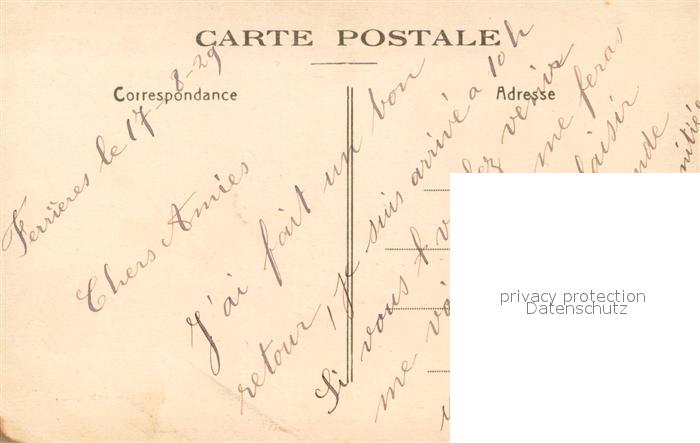 CARTE POSTALE
Correspondance
Adresse
Ferrières le 17-8-29
Chers Amies
J'ai fait un bon
retour, je suis arrivé a 10h
Si vous venir
me me feras
laisir
privacy protection
Datenschutz